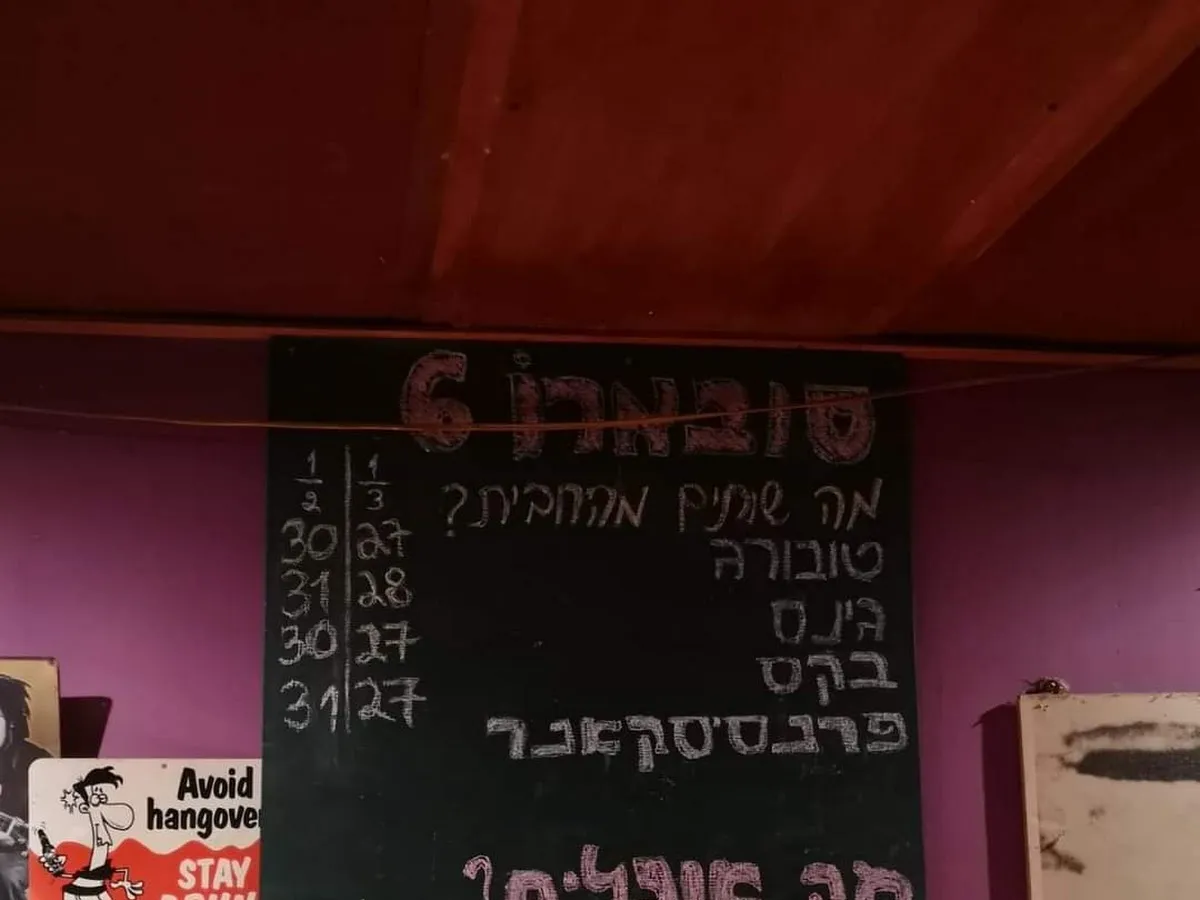 סובארו 6
מה שותים מהחבית?
1/2 | 1/3
טובורג 30 | 27
גינס 31 | 28
בקס 30 | 27
פרנסיסקאנר 31 | 27
מה אוכלים?
Avoid
hangover
STAY
DRUNK